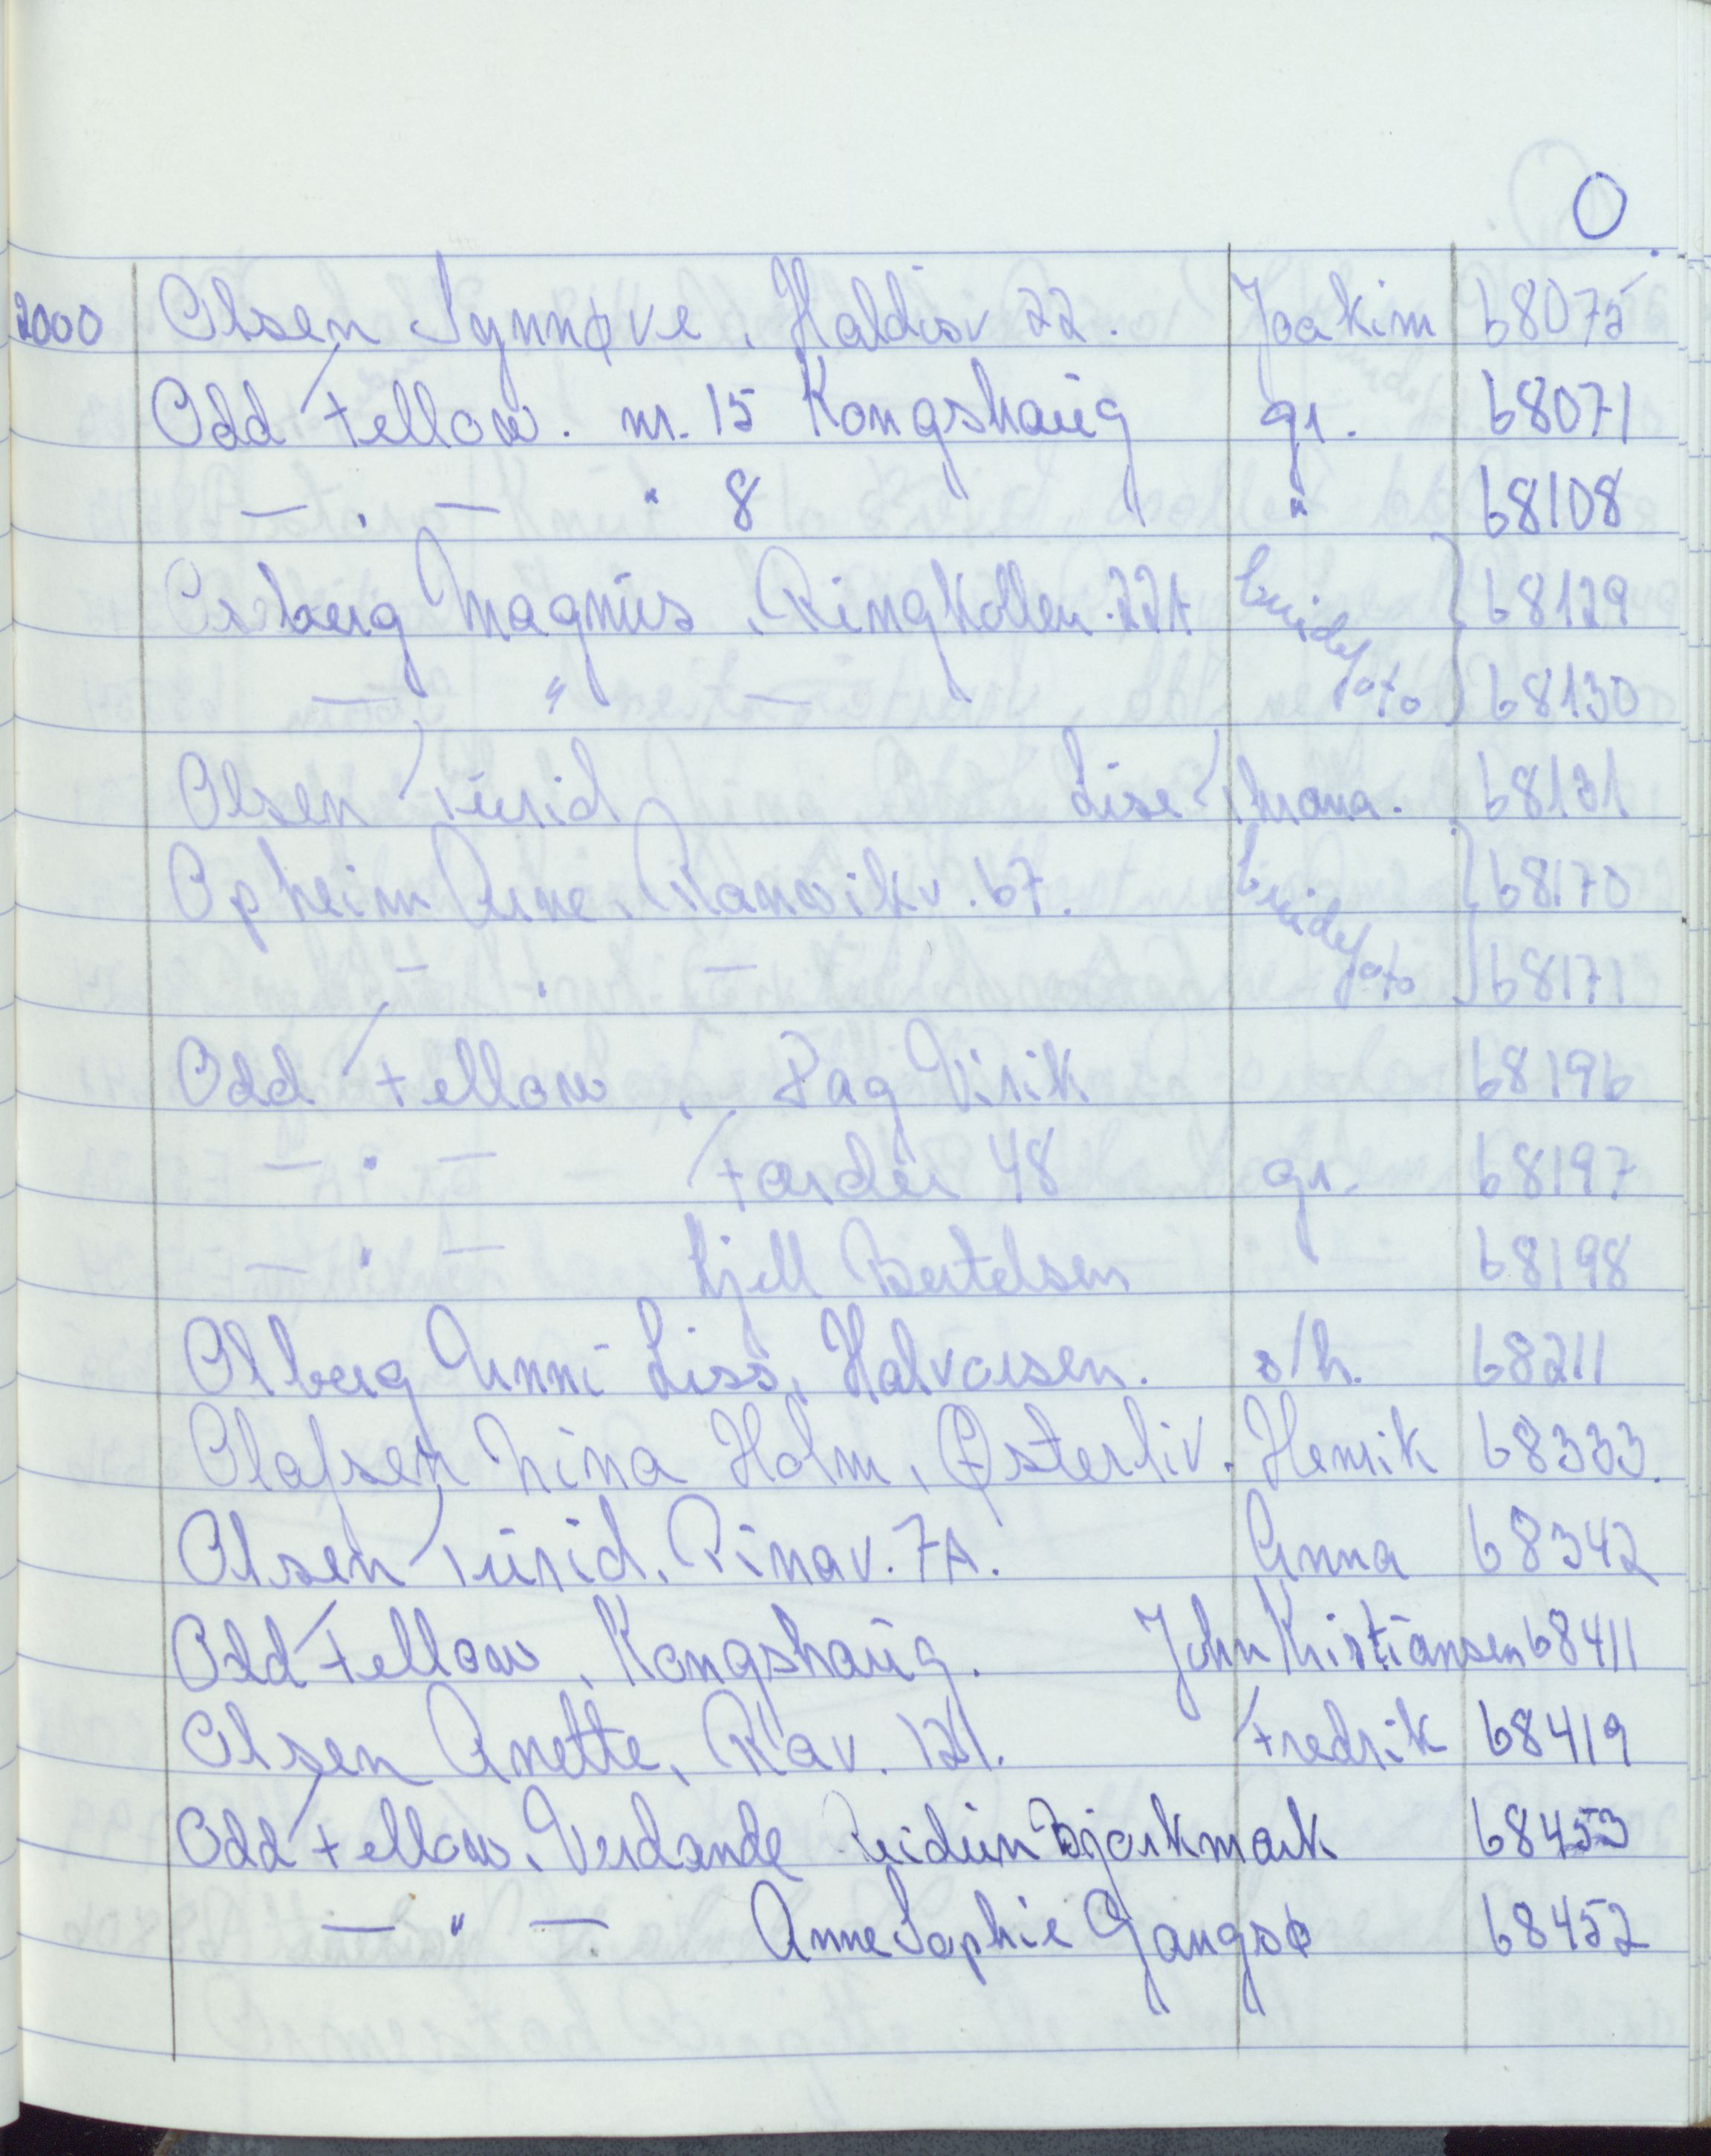 O.
2000 Olsen Synnøve, Haldisv 22. Joakim 68075
Odd Fellow. nr. 15 Kongshaug gr. 68071
— . — " 8 " 68108
Osberg Magnus, Ringkollen. 22A brudefoto } 68129
— " — 68130
Olsen Turid Lise Mona. 68131
Opheim Arne, Ranvikv. 67. brudefoto } 68170
— . — 68171
Odd Fellow, Dag Virik 68196
— . — Færder 48 gr. 68197
— . — Kjell Bertelsen 68198
Olberg Anni Liss, Halvorsen. s/h. 68211
Olafsen Nina Holm, Østerliv. Henrik 68333.
Olsen Turid, Rinav. 7A. Anna 68342
Odd Fellow, Kongshaug. John Kristiansen 68411
Olsen Anette, Råv. 121. Fredrik 68419
Odd Fellow, Verdande Reidun Bjørkmark 68453
— " — Anne Sophie Gangsø 68452